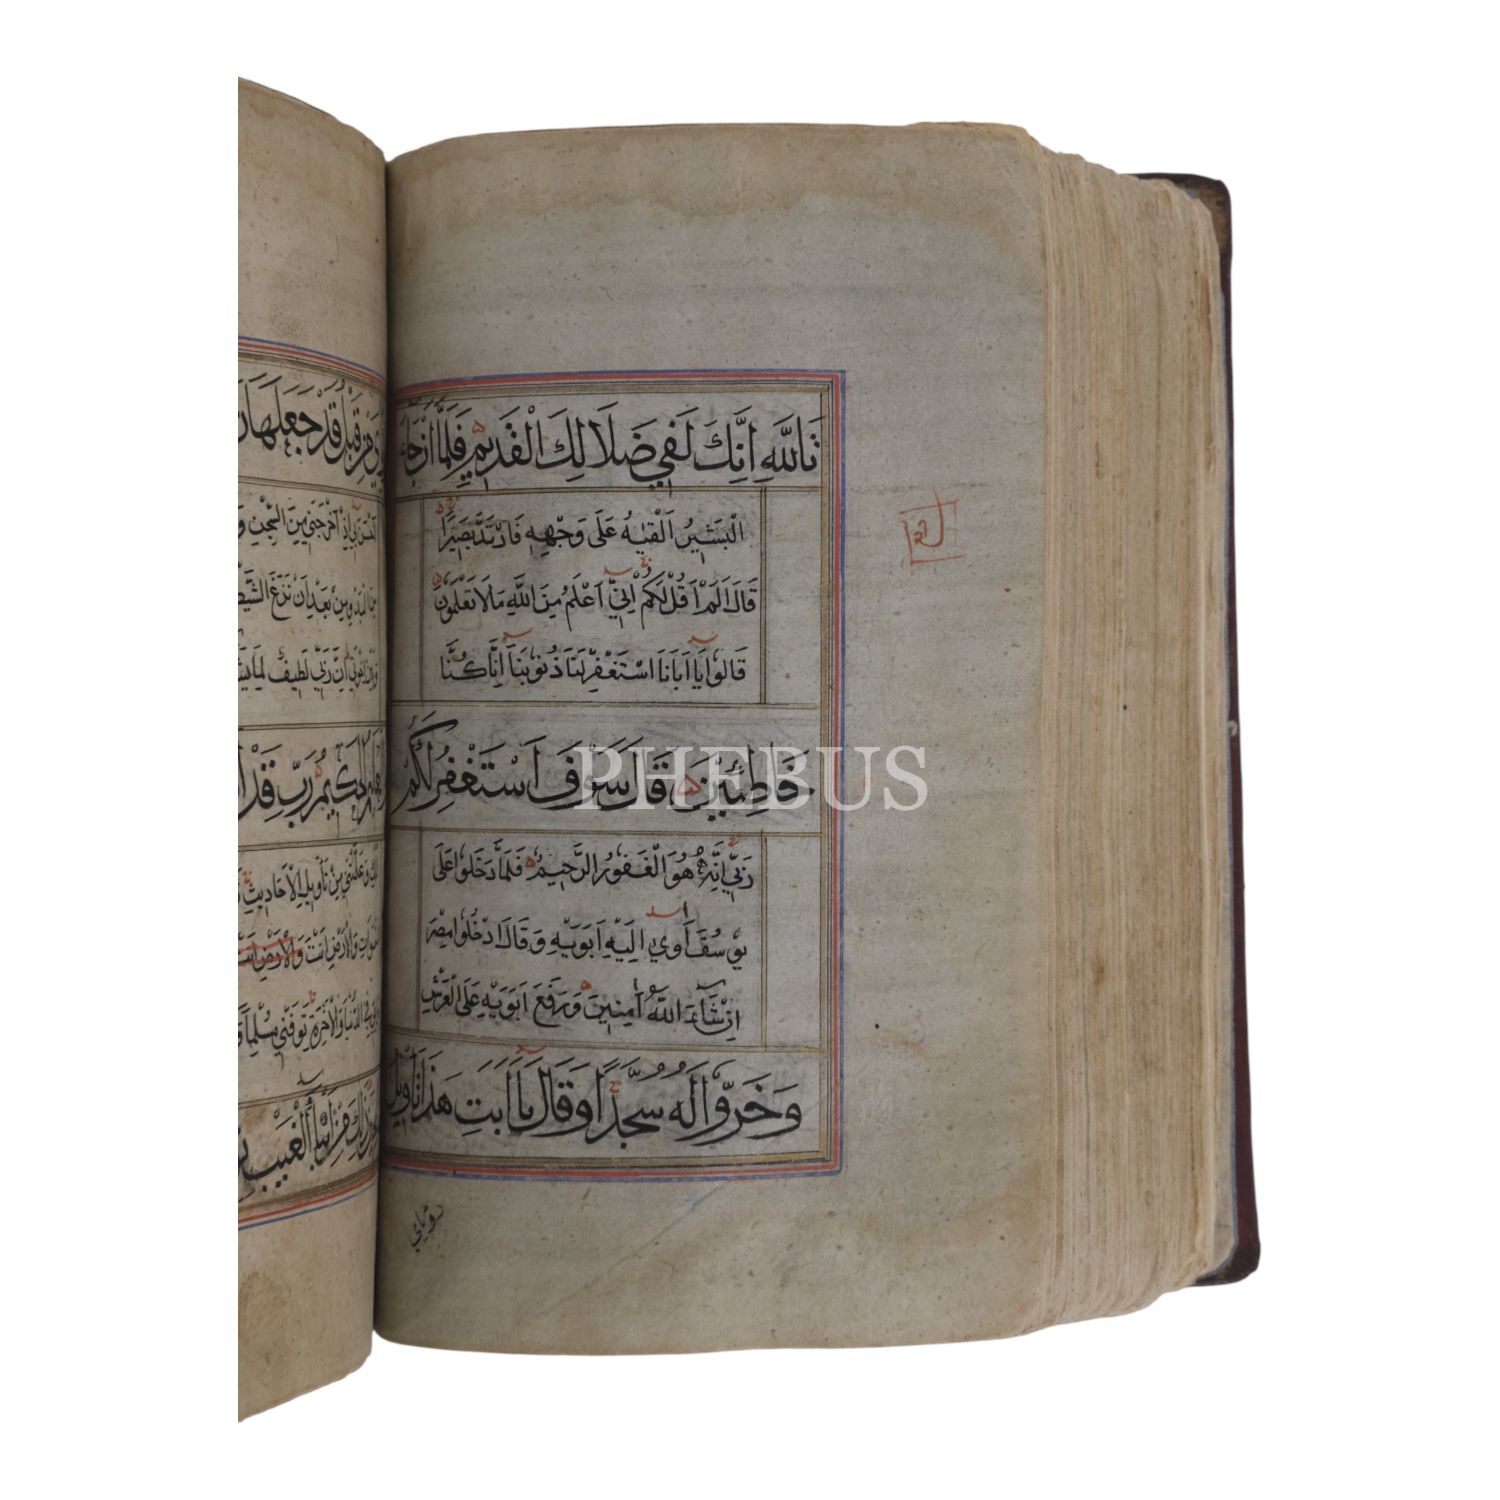 تَاللّٰهِ اِنَّكَ لَفِي ضَلَالِكَ الْقَدِيمِ فَلَمَّا اَنْ جَاءَ
الْبَشِيرُ اَلْقٰيهُ عَلَى وَجْهِهِ فَارْتَدَّ بَصِيرًا
قَالَ اَلَمْ اَقُلْ لَكُمْ اِنِّي اَعْلَمُ مِنَ اللّٰهِ مَا لَا تَعْلَمُونَ
قَالُوا يَا اَبَانَا اسْتَغْفِرْ لَنَا ذُنُوبَنَا اِنَّا كُنَّا
خَاطِئِينَ قَالَ سَوْفَ اَسْتَغْفِرُ لَكُمْ
رَبِّي اِنَّهُ هُوَ الْغَفُورُ الرَّحِيمُ فَلَمَّا دَخَلُوا عَلَى
يُوسُفَ اٰوٰي اِلَيْهِ اَبَوَيْهِ وَقَالَ ادْخُلُوا مِصْرَ
اِنْ شَاءَ اللّٰهُ اٰمِنِينَ وَرَفَعَ اَبَوَيْهِ عَلَى الْعَرْشِ
وَخَرُّوا لَهُ سُجَّدًا وَقَالَ يَا اَبَتِ هَذَا تَاْوِيلُ
رؤياي
مِنْ قَبْلُ قَدْ جَعَلَهَا
اِذْ اَخْرَجَنِي مِنَ السِّجْنِ وَ
الْبَدْوِ مِنْ بَعْدِ اَنْ نَزَغَ
اِنَّ رَبِّي لَطِيفٌ لِمَا
الْحَكِيمُ رَبِّ قَدْ
وَعَلَّمْتَنِي مِنْ تَاْوِيلِ الْاَحَادِيثِ
وَالْاَرْضِ اَنْتَ وَالْاَرْضِ
فِي الدُّنْيَا وَالْاٰخِرَةِ تَوَفَّنِي مُسْلِمًا
مِنْ اَنْبَاءِ الْغَيْبِ
PHEBUS